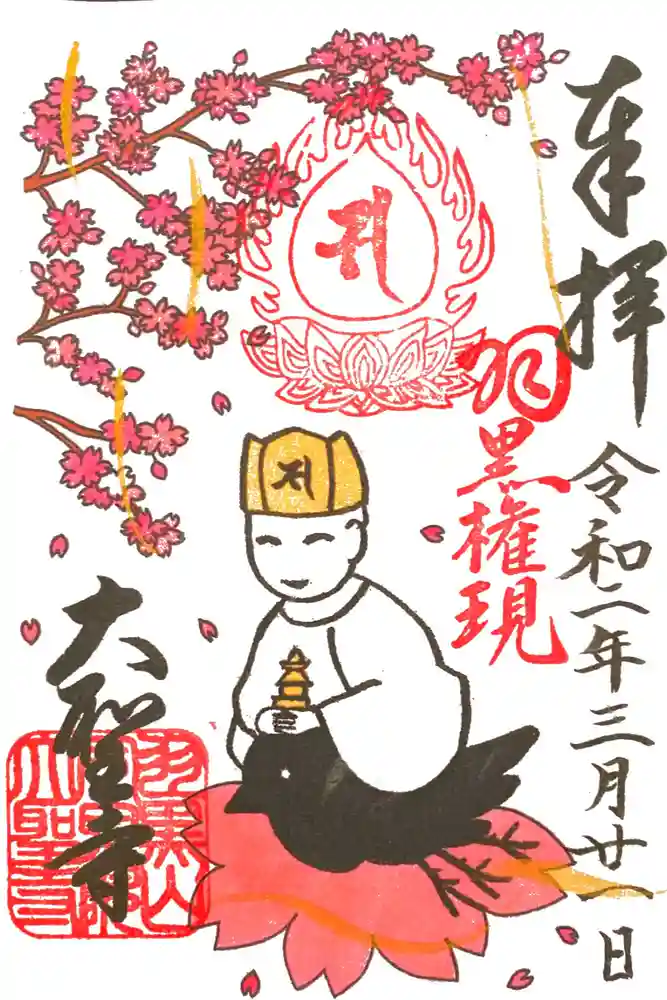 奉拝
令和二年三月廿一日
羽黒権現
大聖寺